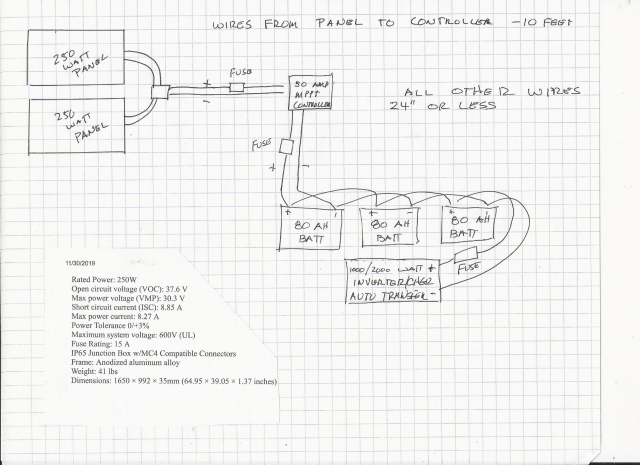 WIRES FROM PANEL TO CONTROLLER -10 FEET
250
WATT
PANEL
250
WATT
PANEL
+
-
FUSE
50 AMP
MPPT
CONTROLLER
ALL OTHER WIRES
24" OR LESS
FUSE
+
-
+ -
80 AH
BATT
+ -
80 AH
BATT
+ -
80 AH
BATT
1000/2000 WATT +
INVERTER/CHGR
AUTO TRANSFER -
FUSE
11/30/2019
Rated Power: 250W
Open circuit voltage (VOC): 37.6 V
Max power voltage (VMP): 30.3 V
Short circuit current (ISC): 8.85 A
Max power current: 8.27 A
Power Tolerance 0/+3%
Maximum system voltage: 600V (UL)
Fuse Rating: 15 A
IP65 Junction Box w/MC4 Compatible Connectors
Frame: Anodized aluminum alloy
Weight: 41 lbs
Dimensions: 1650 × 992 × 35mm (64.95 × 39.05 × 1.37 inches)